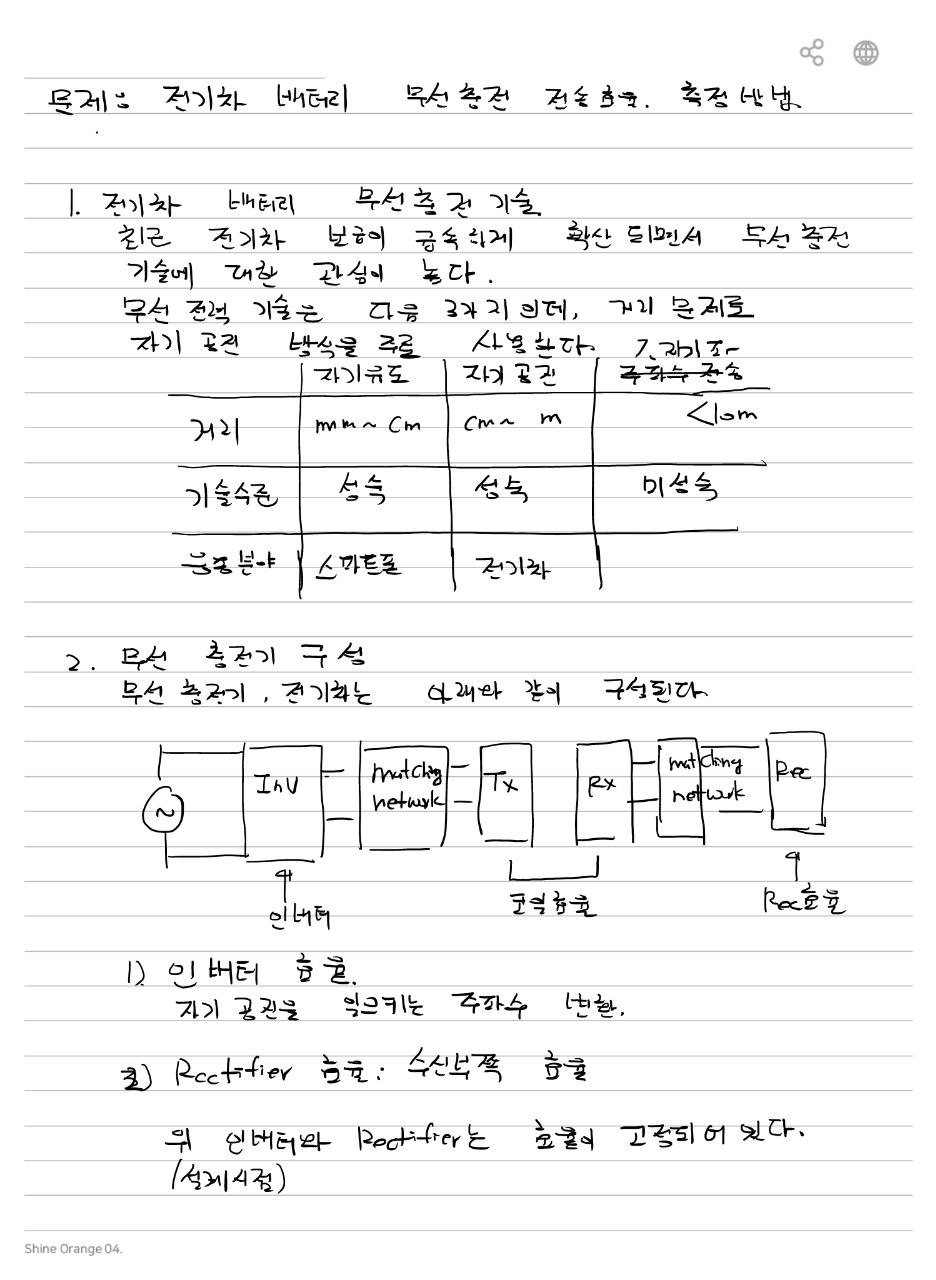 문제: 전기차 배터리 무선충전 전송효율. 측정 방법.
1. 전기차 배터리 무선충전 기술
최근 전기차 보급이 급속하게 확산 되면서 무선충전
기술에 대한 관심이 높다.
무선 전력 기술은 다음 3가지 인데, 거리 문제로
자기 공진 방식을 주로 사용한다.
자기유도 자기공진
거리 mm~cm cm~m <10m
기술수준 성숙 성숙 미성숙
응용분야 스마트폰 전기차
2. 무선 충전기 구성
무선 충전기, 전기차는 아래와 같이 구성된다.
~ Inv matching network Tx Rx matching network Rec
인버터 코일효율 Rec효율
1) 인버터 효율.
자기 공진을 일으키는 주파수 변환.
2) Rectifier 효율: 수신부쪽 효율
위 인버터와 Rectifier는 효율이 고정되어 있다.
(설계시점)
Shine Orange 04.